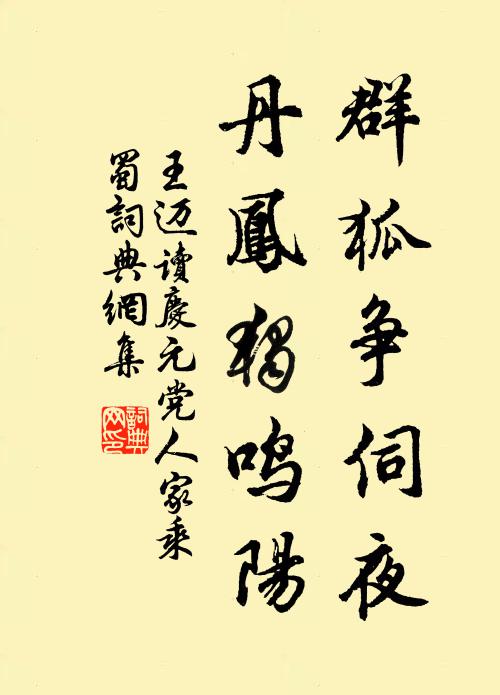 群狐争伺夜
丹鳳獨鳴陽
王迈读慶元党人家乘
蜀詞典網集
詞典網印